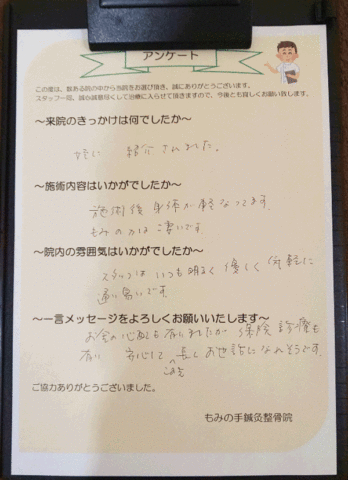 アンケート
この度は、数ある院の中から当院をお選び頂き、誠にありがとうございます。
スタッフ一同、誠心誠意尽くして治療に入らせて頂きますので、今後とも宜しくお願い致します。
～来院のきっかけは何でしたか～
紹介されました。
～施術内容はいかがでしたか～
施術後 身体が軽くなってます。
もみの力は凄いです。
～院内の雰囲気はいかがでしたか～
スタッフは いつも明るく 優しく 気軽に
通い易いです。
～一言メッセージをよろしくお願いいたします～
お金の心配も有りましたが 保険診療も
有り 安心して 長く お世話になれそうです。
ご協力ありがとうございました。
もみの手鍼灸整骨院